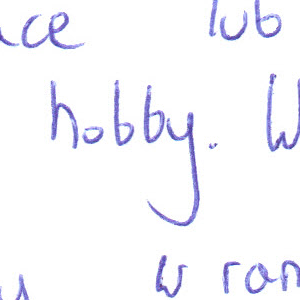 ce lub
hobby. W
w ran